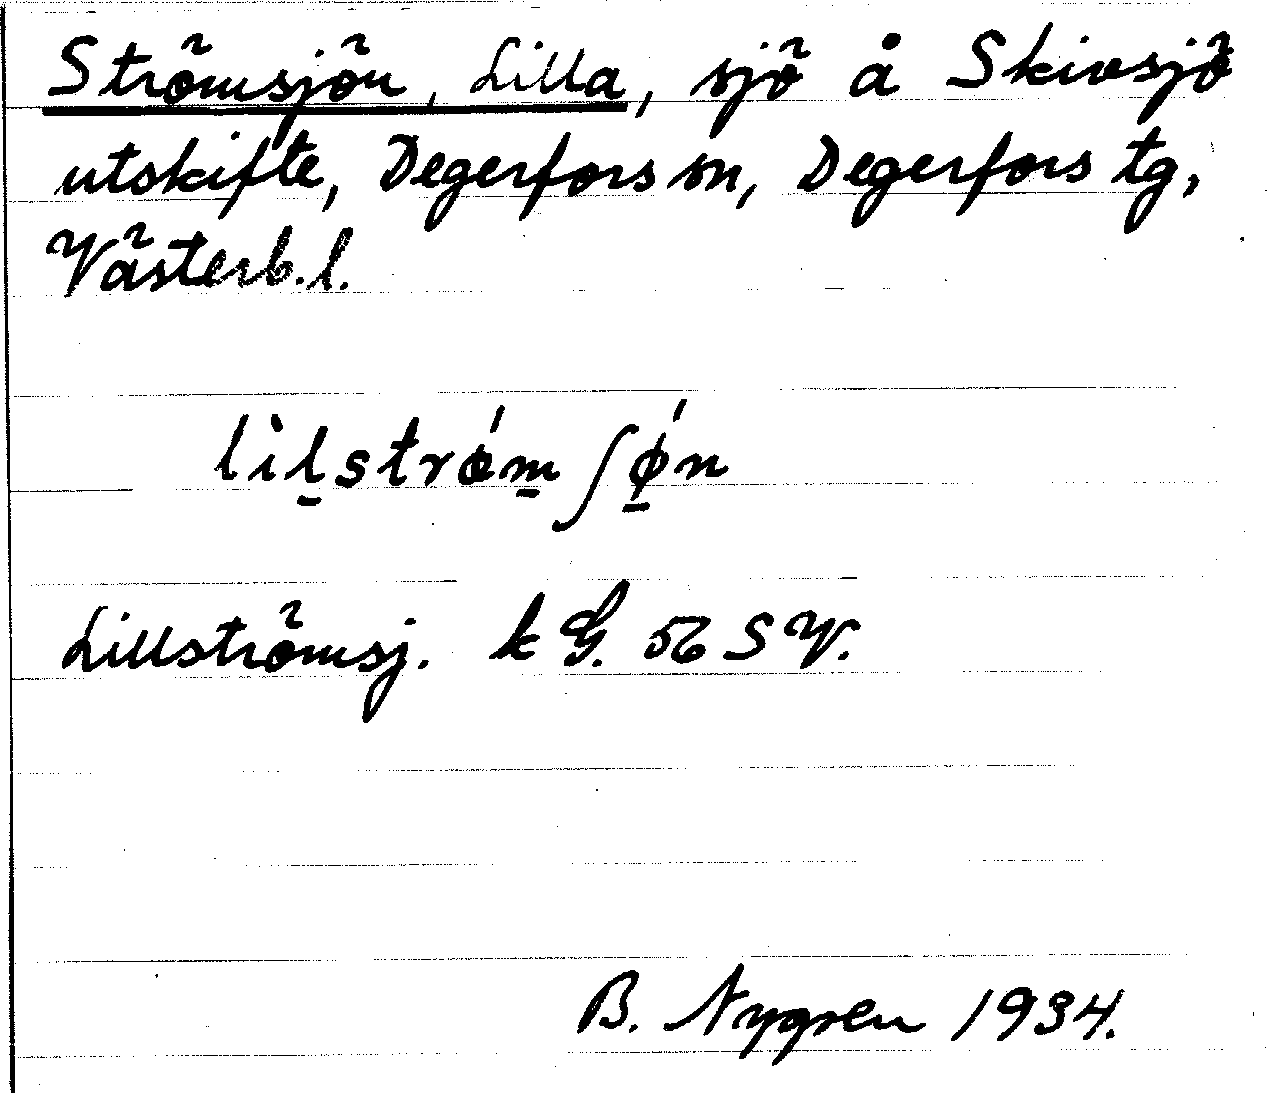 Strömsjön, Lilla, sjö å Skivsjö
utskifte, Degerfors sn, Degerfors tg,
Västerb. l.
lìl̲strǿm̲ʃǿ̲n
Lillströmsj. k G. 56 S V.
B. Nygren 1934.